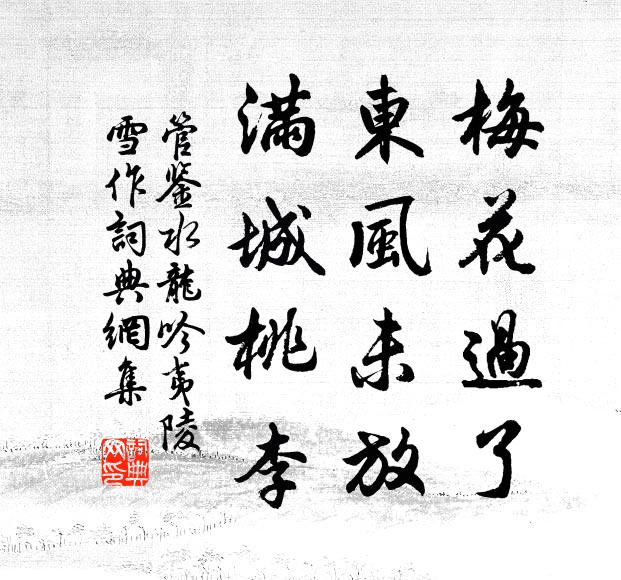 梅花過了
東風未放
滿城桃李
管鉴水龍吟夷陵
雪作詞典網集
詞典网印